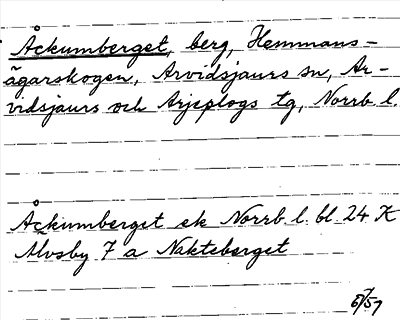 Åckumberget, berg, Hemmans-
ägarskogen, Arvidsjaurs sn, Ar-
vidsjaurs och Arjeplogs tg, Norrb l.
Åckumberget ek Norrb l. bl. 24 K
Älvsby 7 a Nakteberget
6/7 57